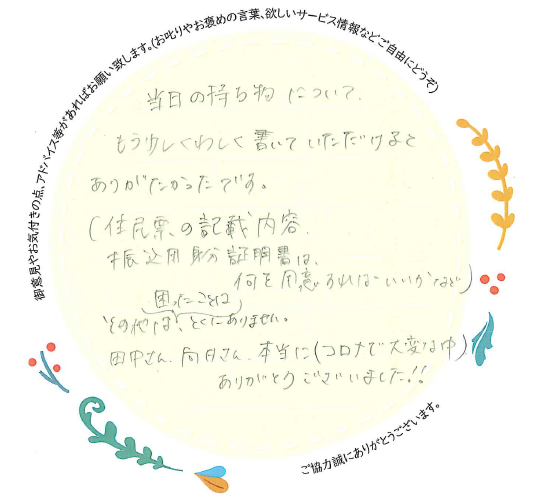 御意見やお気付きの点、アドバイス等があればお願い致します。(お叱りやお褒めの言葉、欲しいサービス情報などご自由にどうぞ)
当日の持ち物について、
もう少しくわしく書いていただけると
ありがたかったです。
(住民票の記載内容、
振込用身分証明書は、
何を用意すればいいかなど)
困ったことは
その他は、とくにありません。
田中さん、向日さん、本当に(コロナで大変な中)
ありがとうございました!!
ご協力誠にありがとうございます。